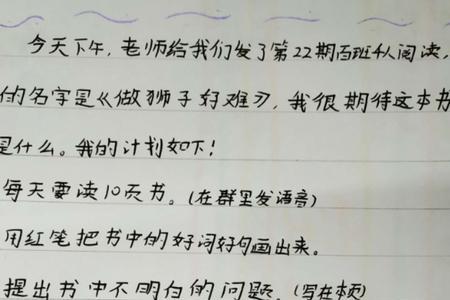 今天下午，老师给我们发了第22期百班千人阅读，
的名字是《做狮子好难》，我很期待这本书
是什么。我的计划如下！
每天要读10页书。（在群里发语音）
用红笔把书中的好词好句画出来。
提出书中不明白的问题。（写在本页）